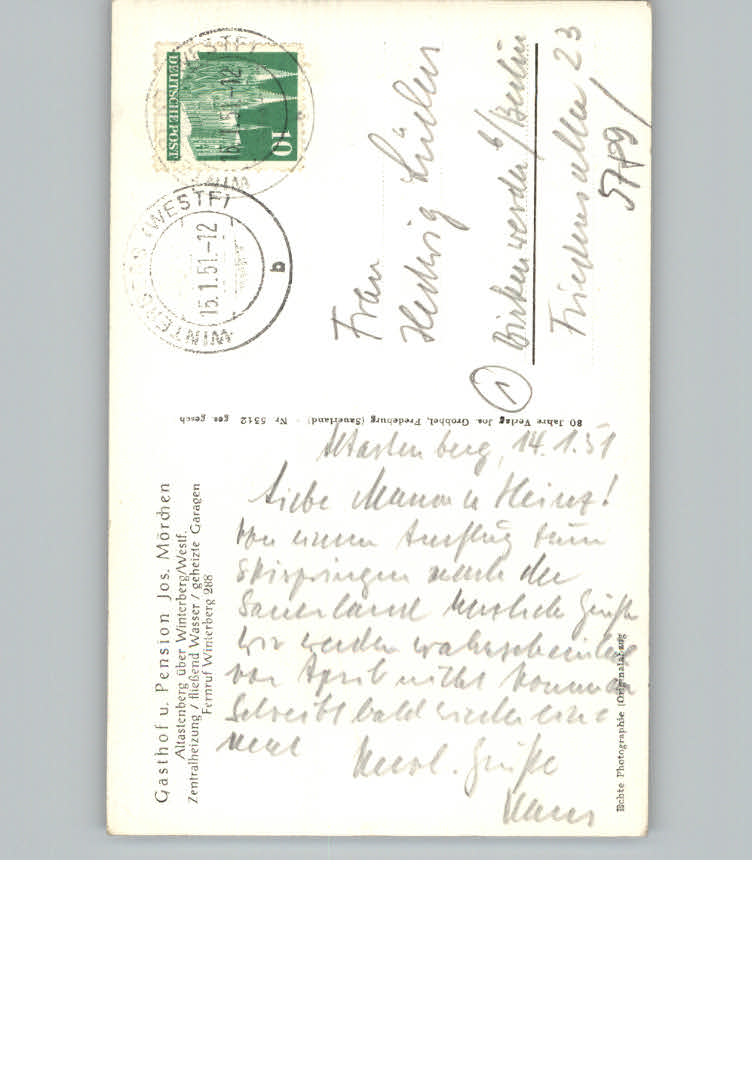 Gasthof u. Pension Jos. Mörchen
Altastenberg über Winterberg/Westf.
Zentralheizung / fließend Wasser / geheizte Garagen
Fernruf Winterberg 288
Altastenberg, 14.1.51
Liebe Mama u Heinz!
Von einem Ausflug zum
Skispringen nach der
Sauerland herzliche Grüße
wir werden wahrscheinlich
vor April nicht kommen
Schreibt bald wieder
mal
Herzl. Grüße
Hans
Echte Photographie (Originalabzug
80 Jahre Verlag Jos. Grobbel, Fredeburg (Sauerland) · Nr 5512 ges gesch
DEUTSCHE POST
10
(WESTF)
15.1.51.-12
b
Frau
Hedwig
1 Birkenwerder b/Berlin
Friedensallee 23